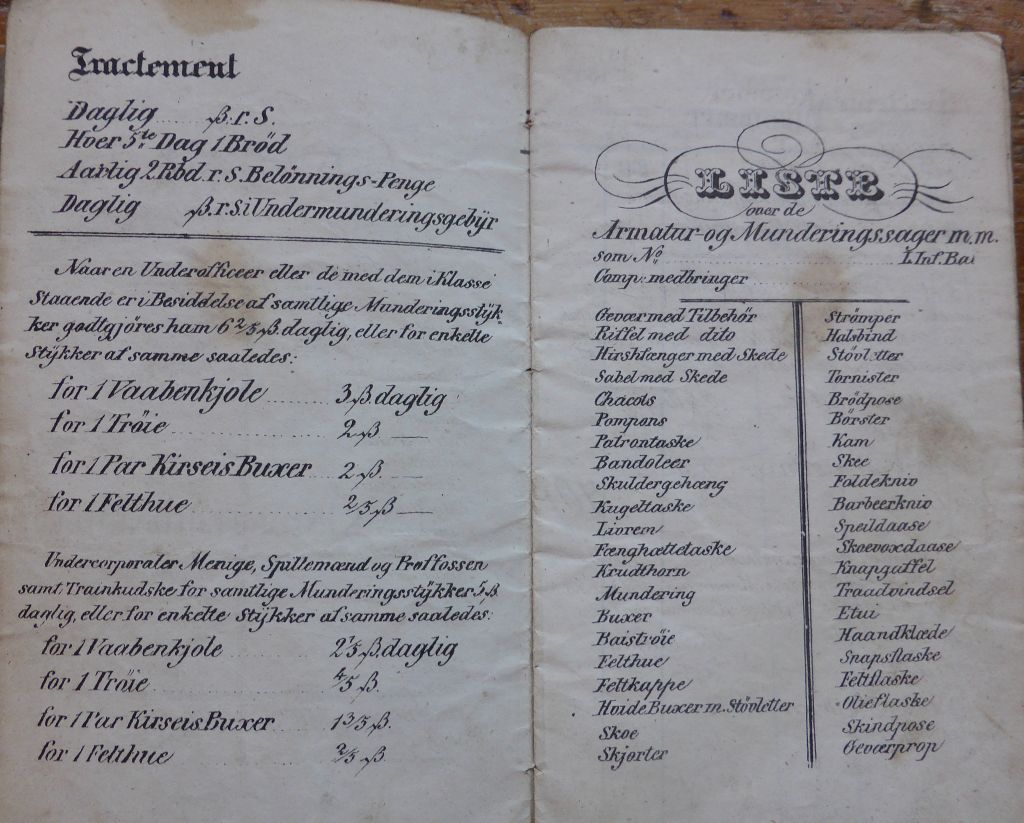 Tractement
Daglig ..... ß. r. S.
Hver 5te Dag 1 Bröd
Aarlig 2 Rbd. r. S. Belönnings-Penge
Daglig ß. r. S. i Undermunderingsgebÿr
Naar en Underofficeer eller de med dem i Klasse
staaende er i Besiddelse af samtlige Munderingsstÿk-
ker godtgjöres ham 6 2/5 ß. daglig, eller for enkelte
Stÿkker af samme saaledes:
for 1 Vaabenkjole ........ 3 ß. daglig
for 1 Tröie .............. 2 ß. —
for 1 Par Kirseis Buxer ... 2 ß. —
for 1 Felthue ............ 2/5 ß —
Undercorporaler Menige, Spillemænd og Proffossen
samt Trainkudske for samtlige Munderingsstÿkker 5 ß.
daglig, eller for enkelte Stÿkker af samme saaledes:
for 1 Vaabenkjole ........ 2 3/5 ß. daglig
for 1 Tröie .............. 4/5 ß.
for 1 Par Kirseis Buxer ... 1 3/5 ß.
for 1 Felthue ............ 2/5 ß.
LISTE
over de
Armatur-og Munderingssager m. m.
som No ........ 1. Inf. Ba
Comp: medbringer ........
Geværmed Tilbehör
Riffel med dito
Hirshfænger med Skede
Sabel med Skede
Chacots
Pompons
Patrontaske
Bandoleer
Skuldergehæng
Kugeltaske
Livrem
Fænghættetaske
Krudthorn
Mundering
Buxer
Baiströie
Felthue
Feltkappe
Hvide Buxer m. Stövletter
Skoe
Skjorter
Strömper
Halsbind
Stövletter
Tornister
Brödpose
Börster
Kam
Skee
Foldekniv
Barbeerkniv
Speildaase
Skoevoxdaase
Knapgaffel
Traadvindsel
Etui
Haandklæde
Snapsflaske
Feltflaske
Olieflaske
Skindpose
Geværprop